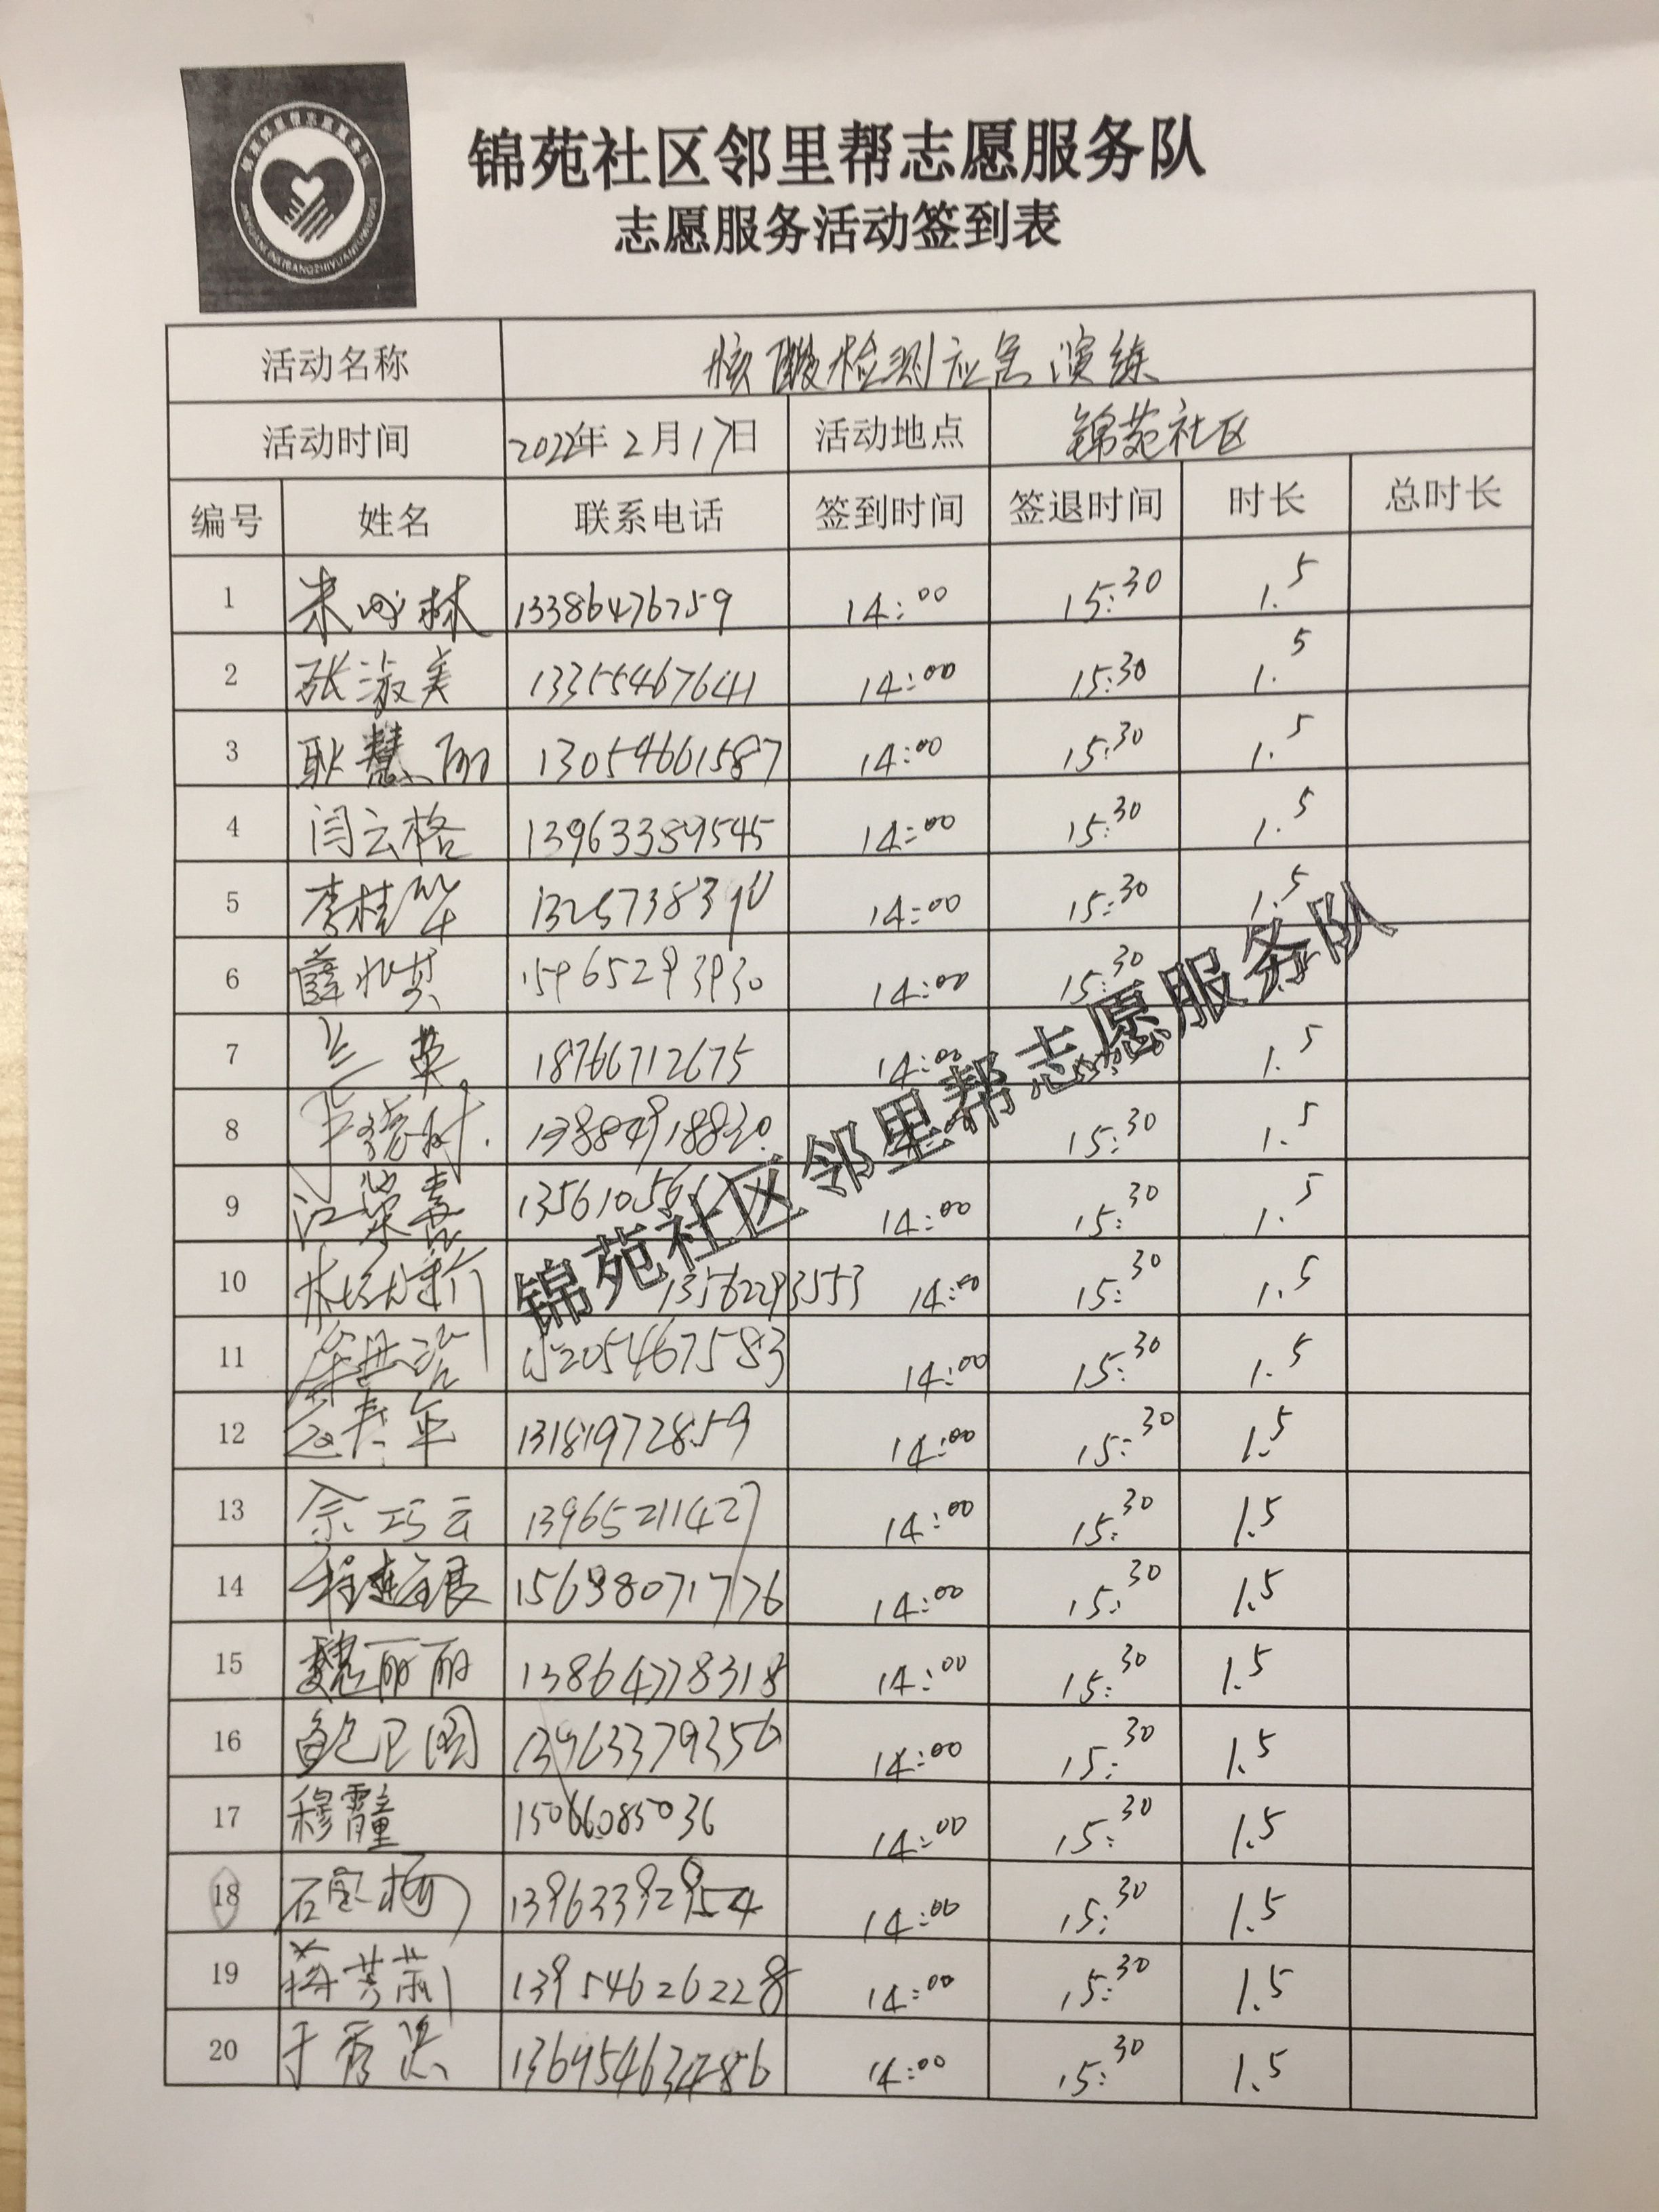 锦苑社区邻里帮志愿服务队
志愿服务活动签到表
活动名称 核酸检测应急演练
活动时间 2022年2月17日 活动地点 锦苑社区
编号 姓名 联系电话 签到时间 签退时间 时长 总时长
1 13386476759 14:00 15:30 1.5
2 张淑美 13355467641 14:00 15:30 1.5
3 耿慧丽 13054661587 14:00 15:30 1.5
4 闫云格 13963389545 14:00 15:30 1.5
5 李桂华 14:00 15:30 1.5
6 薛 15965293930 14:00 15:30
7 兰英 18766712675 14:00 1.5
8 13884918830 15:30 1.5
9 江荣喜 14:00 15:30 1.5
10 13562293553 14:00 15:30 1.5
11 15205467583 14:00 15:30 1.5
12 13181972859 14:00 15:30 1.5
13 佘巧云 13965211427 14:00 15:30 1.5
14 14:00 15:30 1.5
15 魏丽丽 13864778318 14:00 15:30 1.5
16 鲍卫国 13963379356 14:00 15:30 1.5
17 穆 15066085036 14:00 15:30 1.5
18 石宝梅 13963392954 14:00 15:30 1.5
19 蒋芳莉 13954626228 14:00 15:30 1.5
20 于秀 14:00 15:30 1.5
锦苑社区邻里帮志愿服务队